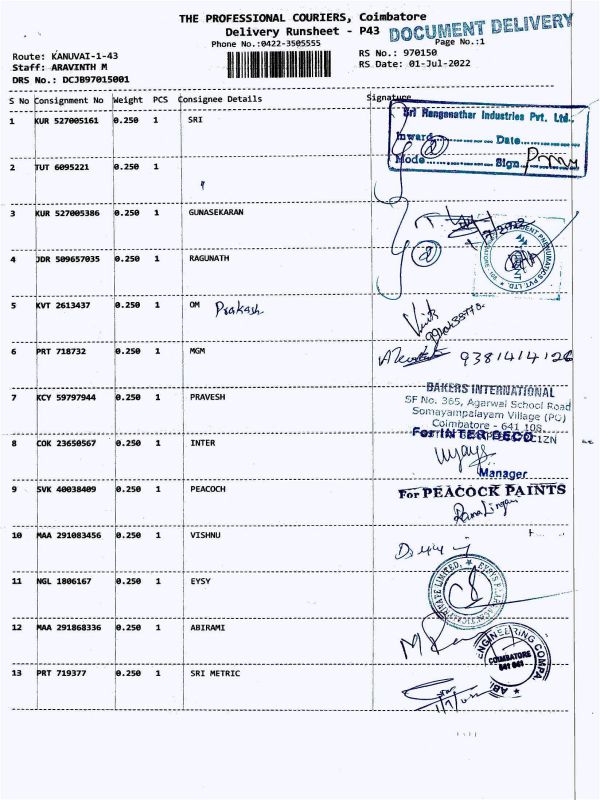 THE PROFESSIONAL COURIERS, Coimbatore
DOCUMENT DELIVERY
Delivery Runsheet - P43
Phone No.:0422-3505555
Page No.:1
Route: KANUVAI-1-43
RS No.: 970150
Staff: ARAVINTH M
RS Date: 01-Jul-2022
DRS No.: DCJB97015001
S No Consignment No Weight PCS Consignee Details Signature
Sri Ranganathar Industries Pvt. Ltd.
1 KUR 527005161 0.250 1 SRI
Inward Date
Mode Sign
2 TUT 6095221 0.250 1
3 KUR 527005386 0.250 1 GUNASEKARAN
4 JDR 509657035 0.250 1 RAGUNATH
5 KVT 2613437 0.250 1 OM Prakash
6 PRT 718732 0.250 1 MGM
9381414126
BAKERS INTERNATIONAL
7 KCY 59797944 0.250 1 PRAVESH
SF No. 365, Agarwal School Road
Somayampalayam Village (PO)
Coimbatore - 641 108
For INTER DECO
8 COK 23650567 0.250 1 INTER
Manager
9 SVK 40038409 0.250 1 PEACOCH
For PEACOCK PAINTS
10 MAA 291083456 0.250 1 VISHNU
11 NGL 1806167 0.250 1 EYSY
12 MAA 291868336 0.250 1 ABIRAMI
ENGINEERING
COIMBATORE
641 041
13 PRT 719377 0.250 1 SRI METRIC